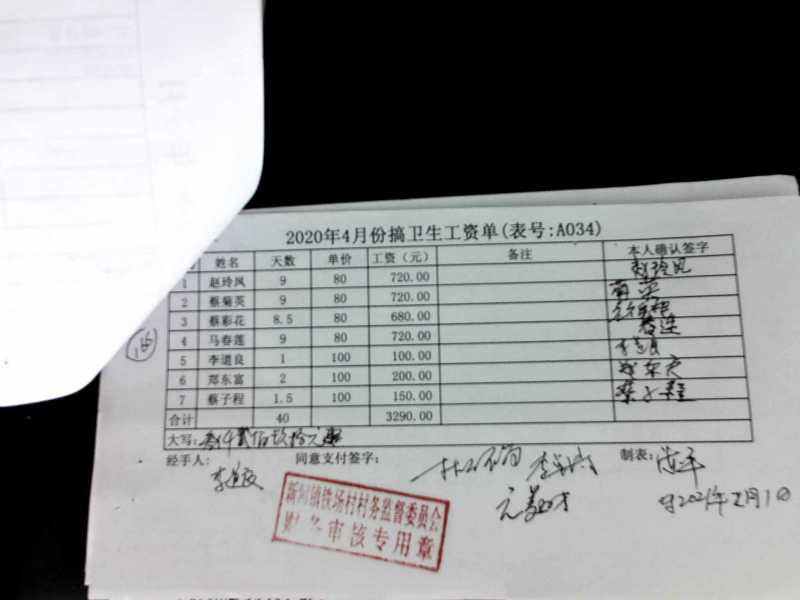 2020年4月份搞卫生工资单(表号:A034)
姓名 天数 单价 工资（元） 备注 本人确认签字
1 赵玲凤 9 80 720.00 赵玲凤
2 蔡菊英 9 80 720.00
3 蔡彩花 8.5 80 680.00
4 马春莲 9 80 720.00 春莲
5 李道良 1 100 100.00
6 郑东富 2 100 200.00
7 蔡子程 1.5 100 150.00 蔡子程
合计 40 3290.00
大写: 叁仟贰佰玖拾元
经手人: 同意支付签字: 制表:
新河镇铁场村村务监督委员会
财务审核专用章
2021年2月1日